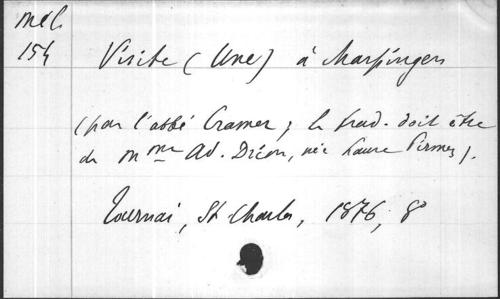 mél.
154
Visite (Une) à Marpingen
(par l'abbé Cramer ; la trad. doit être
de Mme Ad. Drion, née Laure Pirmez).
Tournai, St Charles, 1876, 8°